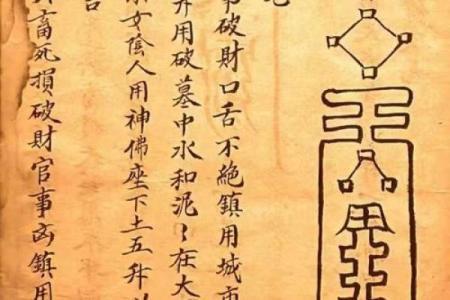 事破財口舌不絕鎮用城市
升用破墓中水和泥〻在大
女陰人用神佛座下土五升
畜死損破財官事凶鎮用